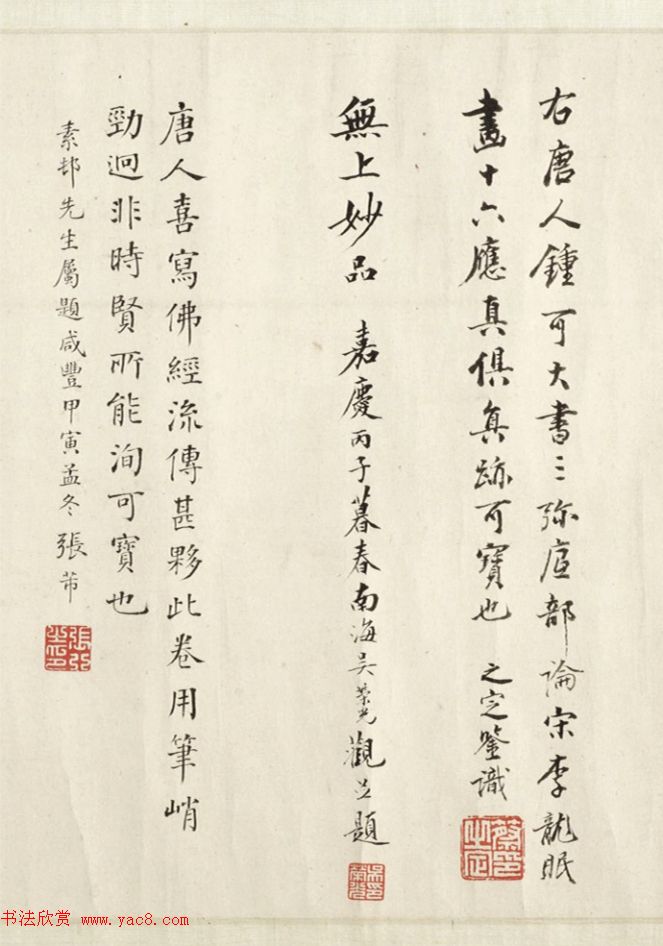 右唐人鍾可大書三弥底部論宋李龍眠
畫十六應真俱真跡可寶也 之定鑒識
蔡印之定
無上妙品 嘉慶丙子暮春南海吳榮光觀並題
吳印榮光
唐人喜寫佛經流傳甚夥此卷用筆峭
勁迥非時賢所能洵可寶也
素邨先生屬題咸豐甲寅孟冬張芾
书法欣赏 www.yac8.com